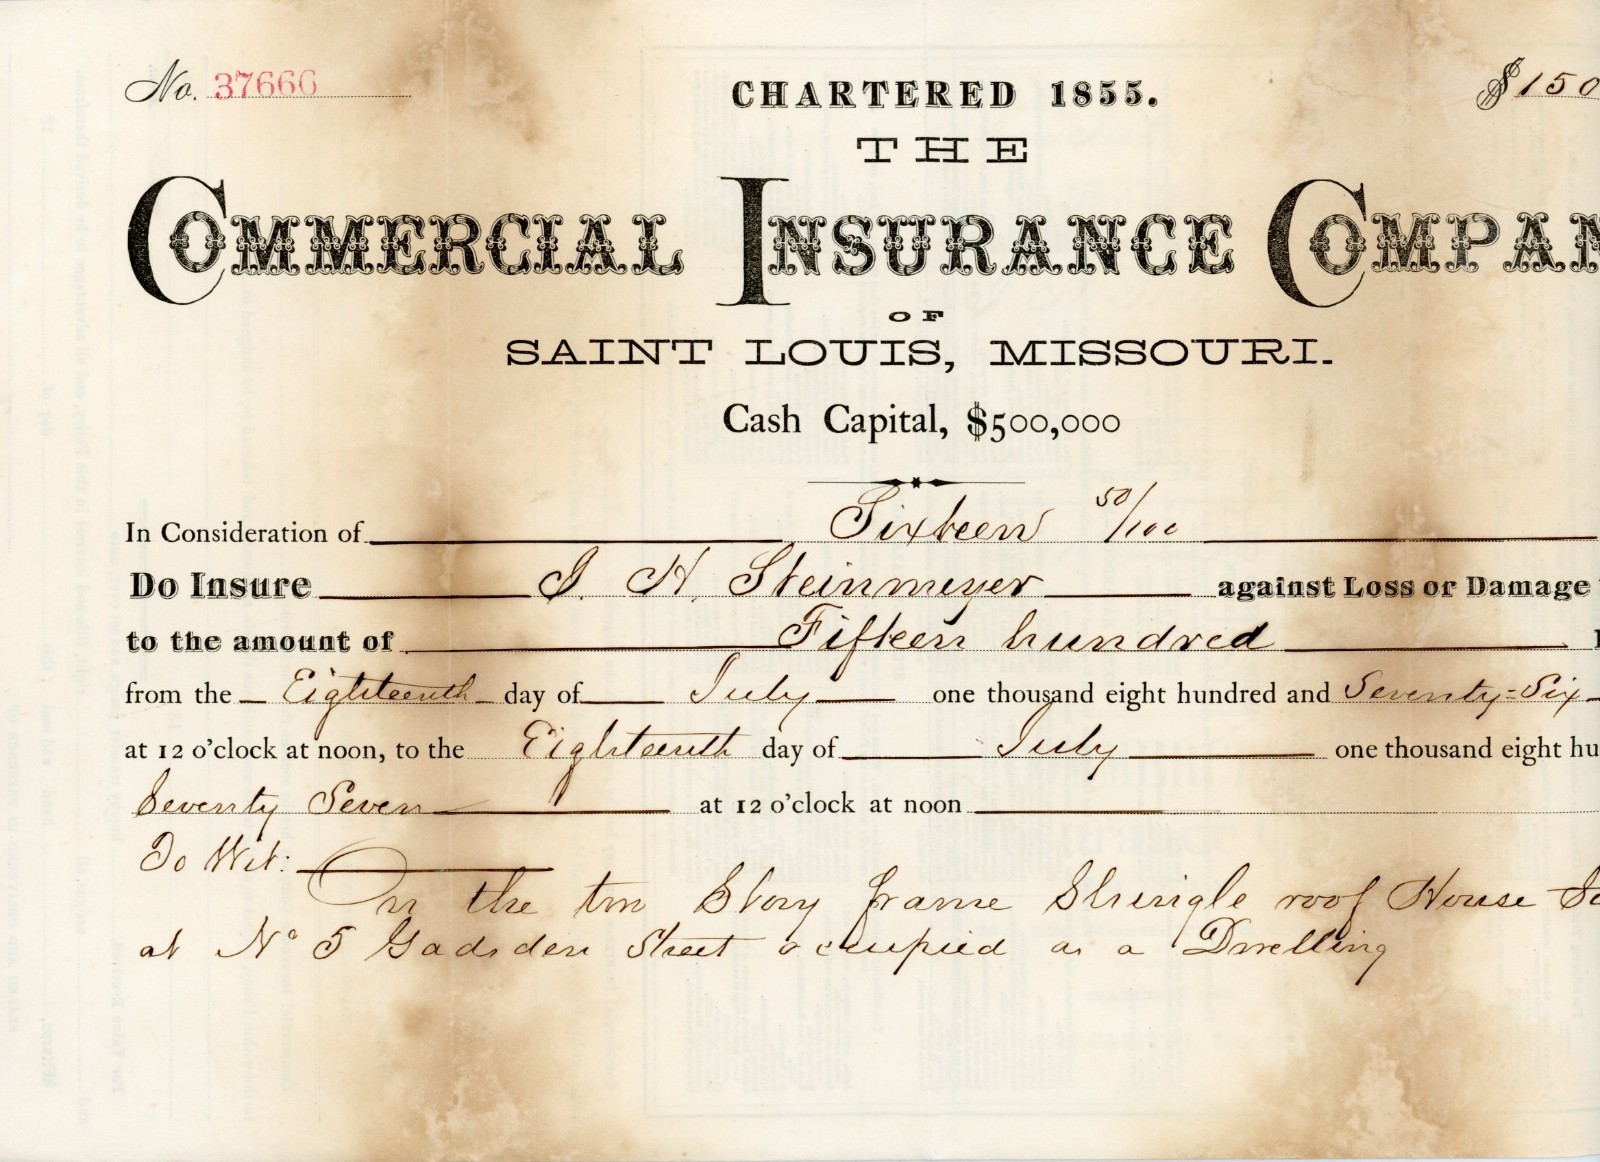 No. 37666
CHARTERED 1855.
$150
THE
COMMERCIAL INSURANCE COMPAN
OF
SAINT LOUIS, MISSOURI.
Cash Capital, $500,000
In Consideration of Sixteen 50/100
Do Insure J. H. Steinmeyer against Loss or Damage
to the amount of Fifteen hundred
from the Eighteenth day of July one thousand eight hundred and Seventy=Six
at 12 o'clock at noon, to the Eighteenth day of July one thousand eight hu
Seventy Seven at 12 o'clock at noon
To Wit:
On the two Story frame Shingle roof House
at No 5 Gadsden Street occupied as a Dwelling